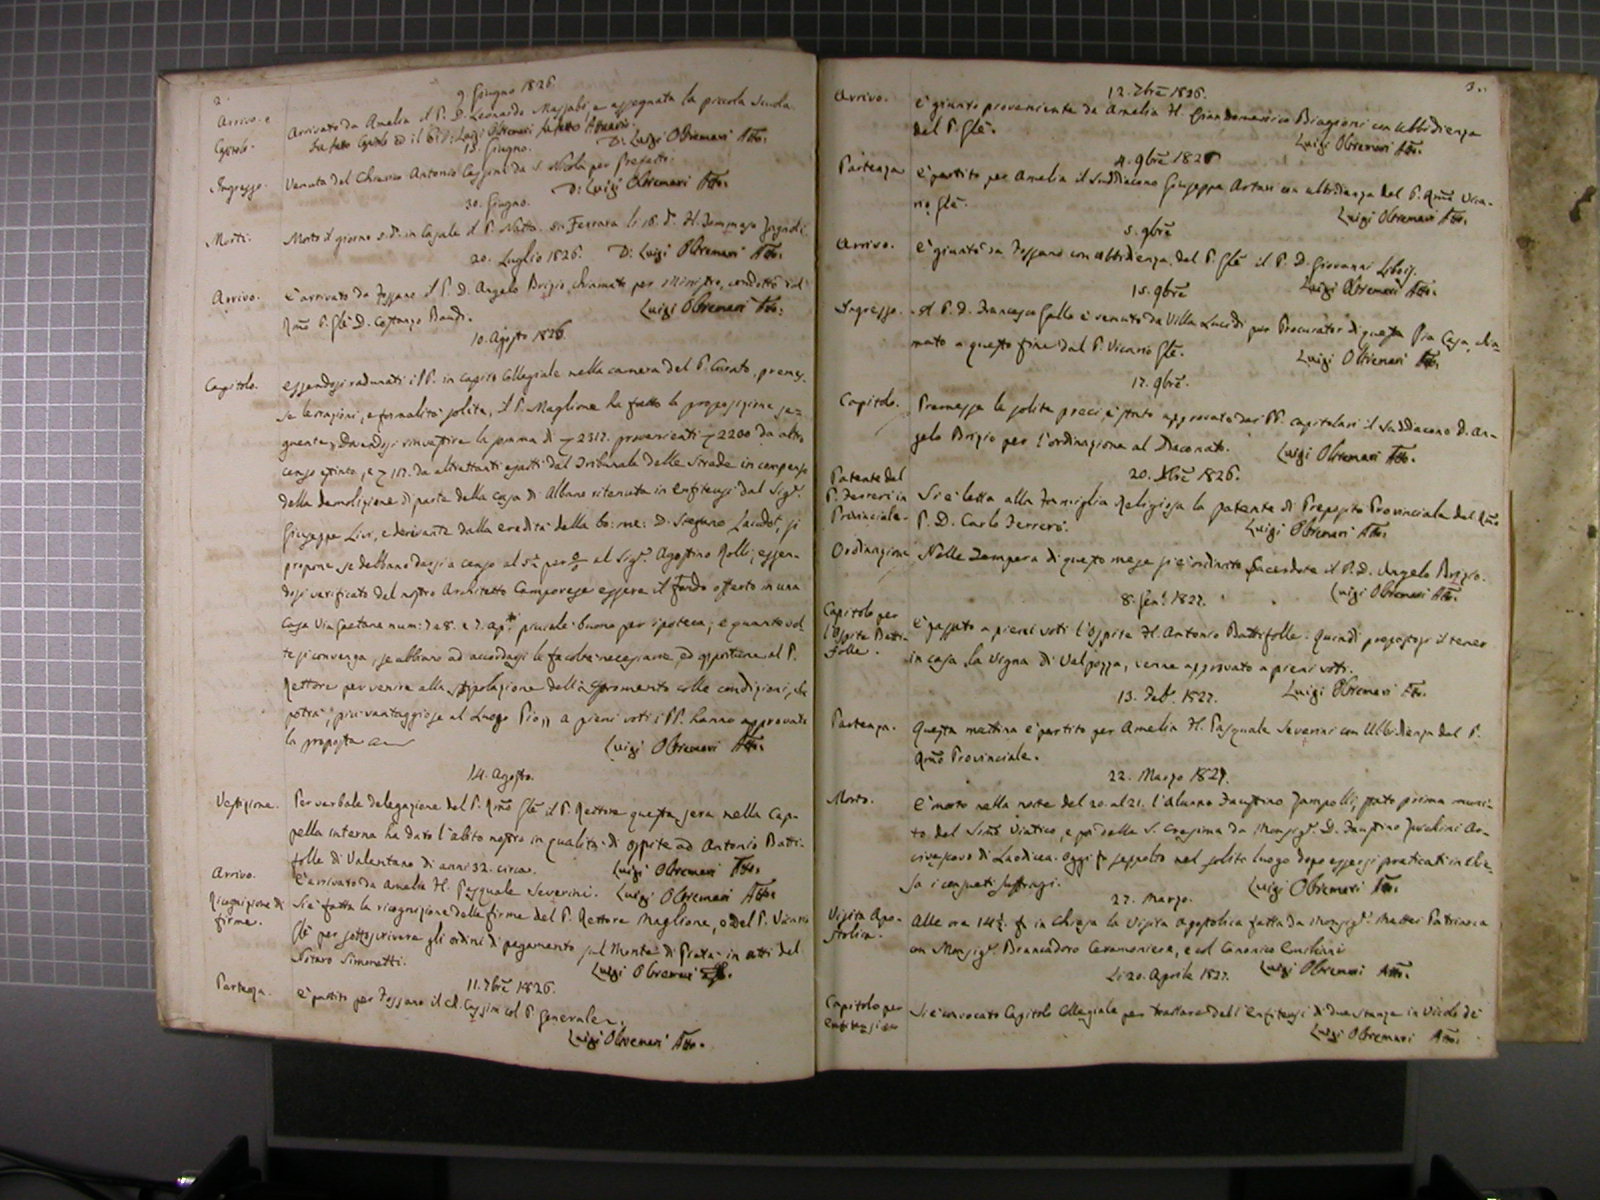 2.
9. Giugno 1826
Arrivo e
Capitolo.
Arrivato da Amelia il P. D. Leonardo e assegnata la piccola scuola.
ha fatto Capitolo ed il P. D. Luigi Oltremari fu fatto Attuario.
D: Luigi Oltremari Att.o
13. Giugno.
Ingresso.
Venuta del Chierico Antonio Cassini da S. Nicola per Prefetto.
D: Luigi Oltremari Att.o
30. Giugno.
Morti.
Morto il giorno s.d. in Casale il P. Natta. In Ferrara li 18. d.o H. Tommaso
D: Luigi Oltremari Att.o
20. Luglio 1826.
Arrivo.
È arrivato da Fossano il P. D. Angelo Brizio chiamato per Ministro, condotto dal
Rmo P. Gle D. Costanzo Baudi.
Luigi Oltremari Att.o
10. Agosto 1826.
Capitolo.
Essendosi radunati i PP. in capito Collegiale nella camera del P. Curato, premes-
se le orazioni, e formalità solite, il P. Maglione ha fatto la proposizione se-
guente: Dovendosi rinvestire la somma di 2317. provenienti 2200 da altro
censo estinto, e 117. da altrettanti esatti dal Tribunale delle Strade in compenso
della demolizione di parte della casa di Albano ritenuta in enfiteusi dal Sigr.
Giuseppe Livi, e derivante dalla eredità della bo: me: D. Stefano si
propone se debbano darsi a censo al 5. per al Sigr. Agostino Rolli; essen-
dosi verificato dal nostro Architetto Camporese essere il fondo offerto in una
casa Via Gaetana num: 7 e 8. e 7. piucché buono per ipoteca; e quante vol-
te si convenga, se abbiano ad accordarsi le facoltà necessarie, ed opportune al P.
Rettore per venire alla stipolazione dell'Istromento colle condizioni, che
potrà, più vantaggiose al Luogo Pio,, a pieni voti i PP. hanno approvata
la proposta
Luigi Oltremari Att.o
14. Agosto.
Vestizione.
Per verbale delegazione del P. Rmo Gle il P. Rettore questa sera nella Cap-
pella interna ha dato l'abito nostro in qualità di ospite ad Antonio Batti-
folle di Valentano di anni 32. circa.
Luigi Oltremari Att.o
Arrivo.
È arrivato da Amelia H. Pasquale Severini.
Luigi Oltremari Att.o
Ricognizione di
firme.
Si è fatta la ricognizione delle firme del P. Rettore Maglione, o del P. Vicario
Gle per sottoscrivere gli ordini di pagamento sul Monte di Pietà in atti del
Notaro Simonetti.
Luigi Oltremari
11. 7bre 1826.
Partenza.
È partito per Fossano il Ch. Cassini col P. Generale.
Luigi Oltremari Att.o
3.
12. 7bre 1826.
Arrivo.
È giunto proveniente da Amelia H. Giandomenico Biagioni con ubbidienza
del P. Gle.
Luigi Oltremari Att.o
4. 9bre 1826
Partenza
È partito per Amelia il Suddiacono Giuseppe Artari con ubbidienza del P. Rmo Vica-
rio Gle.
Luigi Oltremari Att.o
5. 9bre
Arrivo.
È giunto da Fossano con ubbidienza del P. Gle il P. D. Giovanni
Luigi Oltremari Att.o
15. 9bre
Ingresso.
Il P. D. Francesco Gallo è venuto da Villa Lucidi per Procurator di questa Pia Casa, chia-
mato a questo fine dal P. Vicario Gle.
Luigi Oltremari Att.o
17. 9bre.
Capitolo.
Premesse le solite preci, è stato approvato dai PP. capitolari il Suddiacono D. An-
gelo Brizio per l'ordinazione al Diaconato.
Luigi Oltremari Att.o
20. Xbre 1826.
Patente del
P. Ferreri in
Provinciale.
Si è letta alla Famiglia Religiosa la patente di Preposito Provinciale del Rmo
P. D. Carlo Ferrero.
Luigi Oltremari Att.o
Ordinazione
Nelle Tempora di questo mese si è ordinato Sacerdote il P. D. Angelo Brizio.
Luigi Oltremari Att.o
8. Gen. 1827.
Capitolo per
l'Ospite Batti-
folle.
È passato a pieni voti l'Ospite H. Antonio Battifolle: quindi propostosi il tener
in casa la Vigna di Valpozza, venne approvato a pieni voti.
Luigi Oltremari Att.o
13. Feb. 1827.
Partenza.
Questa mattina è partito per Amelia H. Pasquale Severini con Ubbidienza del P.
Rmo Provinciale.
22. Marzo 1827.
Morto.
È morto nella notte del 20. al 21. l'alunno Faustino Zampolli, stato prima muni-
to del Smo Viatico, e poi della S. Cresima da Monsigr. D. Faustino Zucchini Ar-
civescovo di Laodicea. Oggi fu seppolto nel solito luogo dopo essersi praticati in Chie-
sa i consueti suffragi.
Luigi Oltremari Att.o
27. Marzo.
Visita Apo-
stolica.
Alle ore 14½ fu in Chiesa la Visita Apostolica fatta da Monsigr. Mattei Patriarca
con Monsigr. Brancadoro Ceremoniere, e col Canonico Emiliani
Luigi Oltremari Att.o
Li 20. Aprile 1827.
Capitolo per
Enfiteusi
Si è convocato Capitolo Collegiale per trattare dell'Enfiteusi di due stanze in Vicolo de'
Luigi Oltremari Att.o